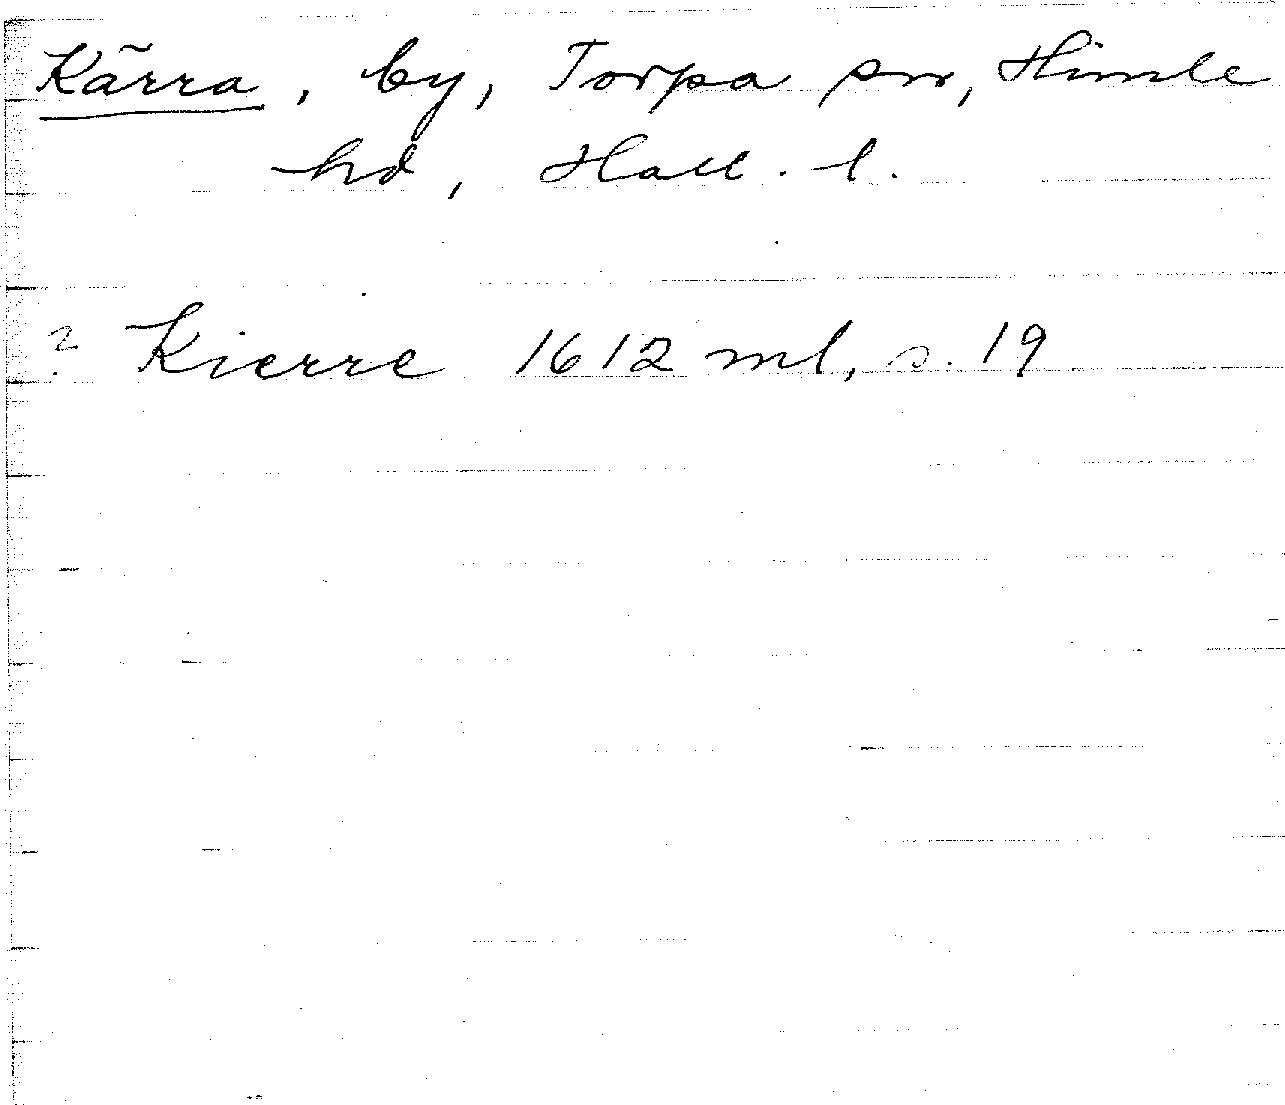 Kärra, by, Torpa sn, Himle
hd, Hall. l.
? Kierre 1612 ml, s. 19